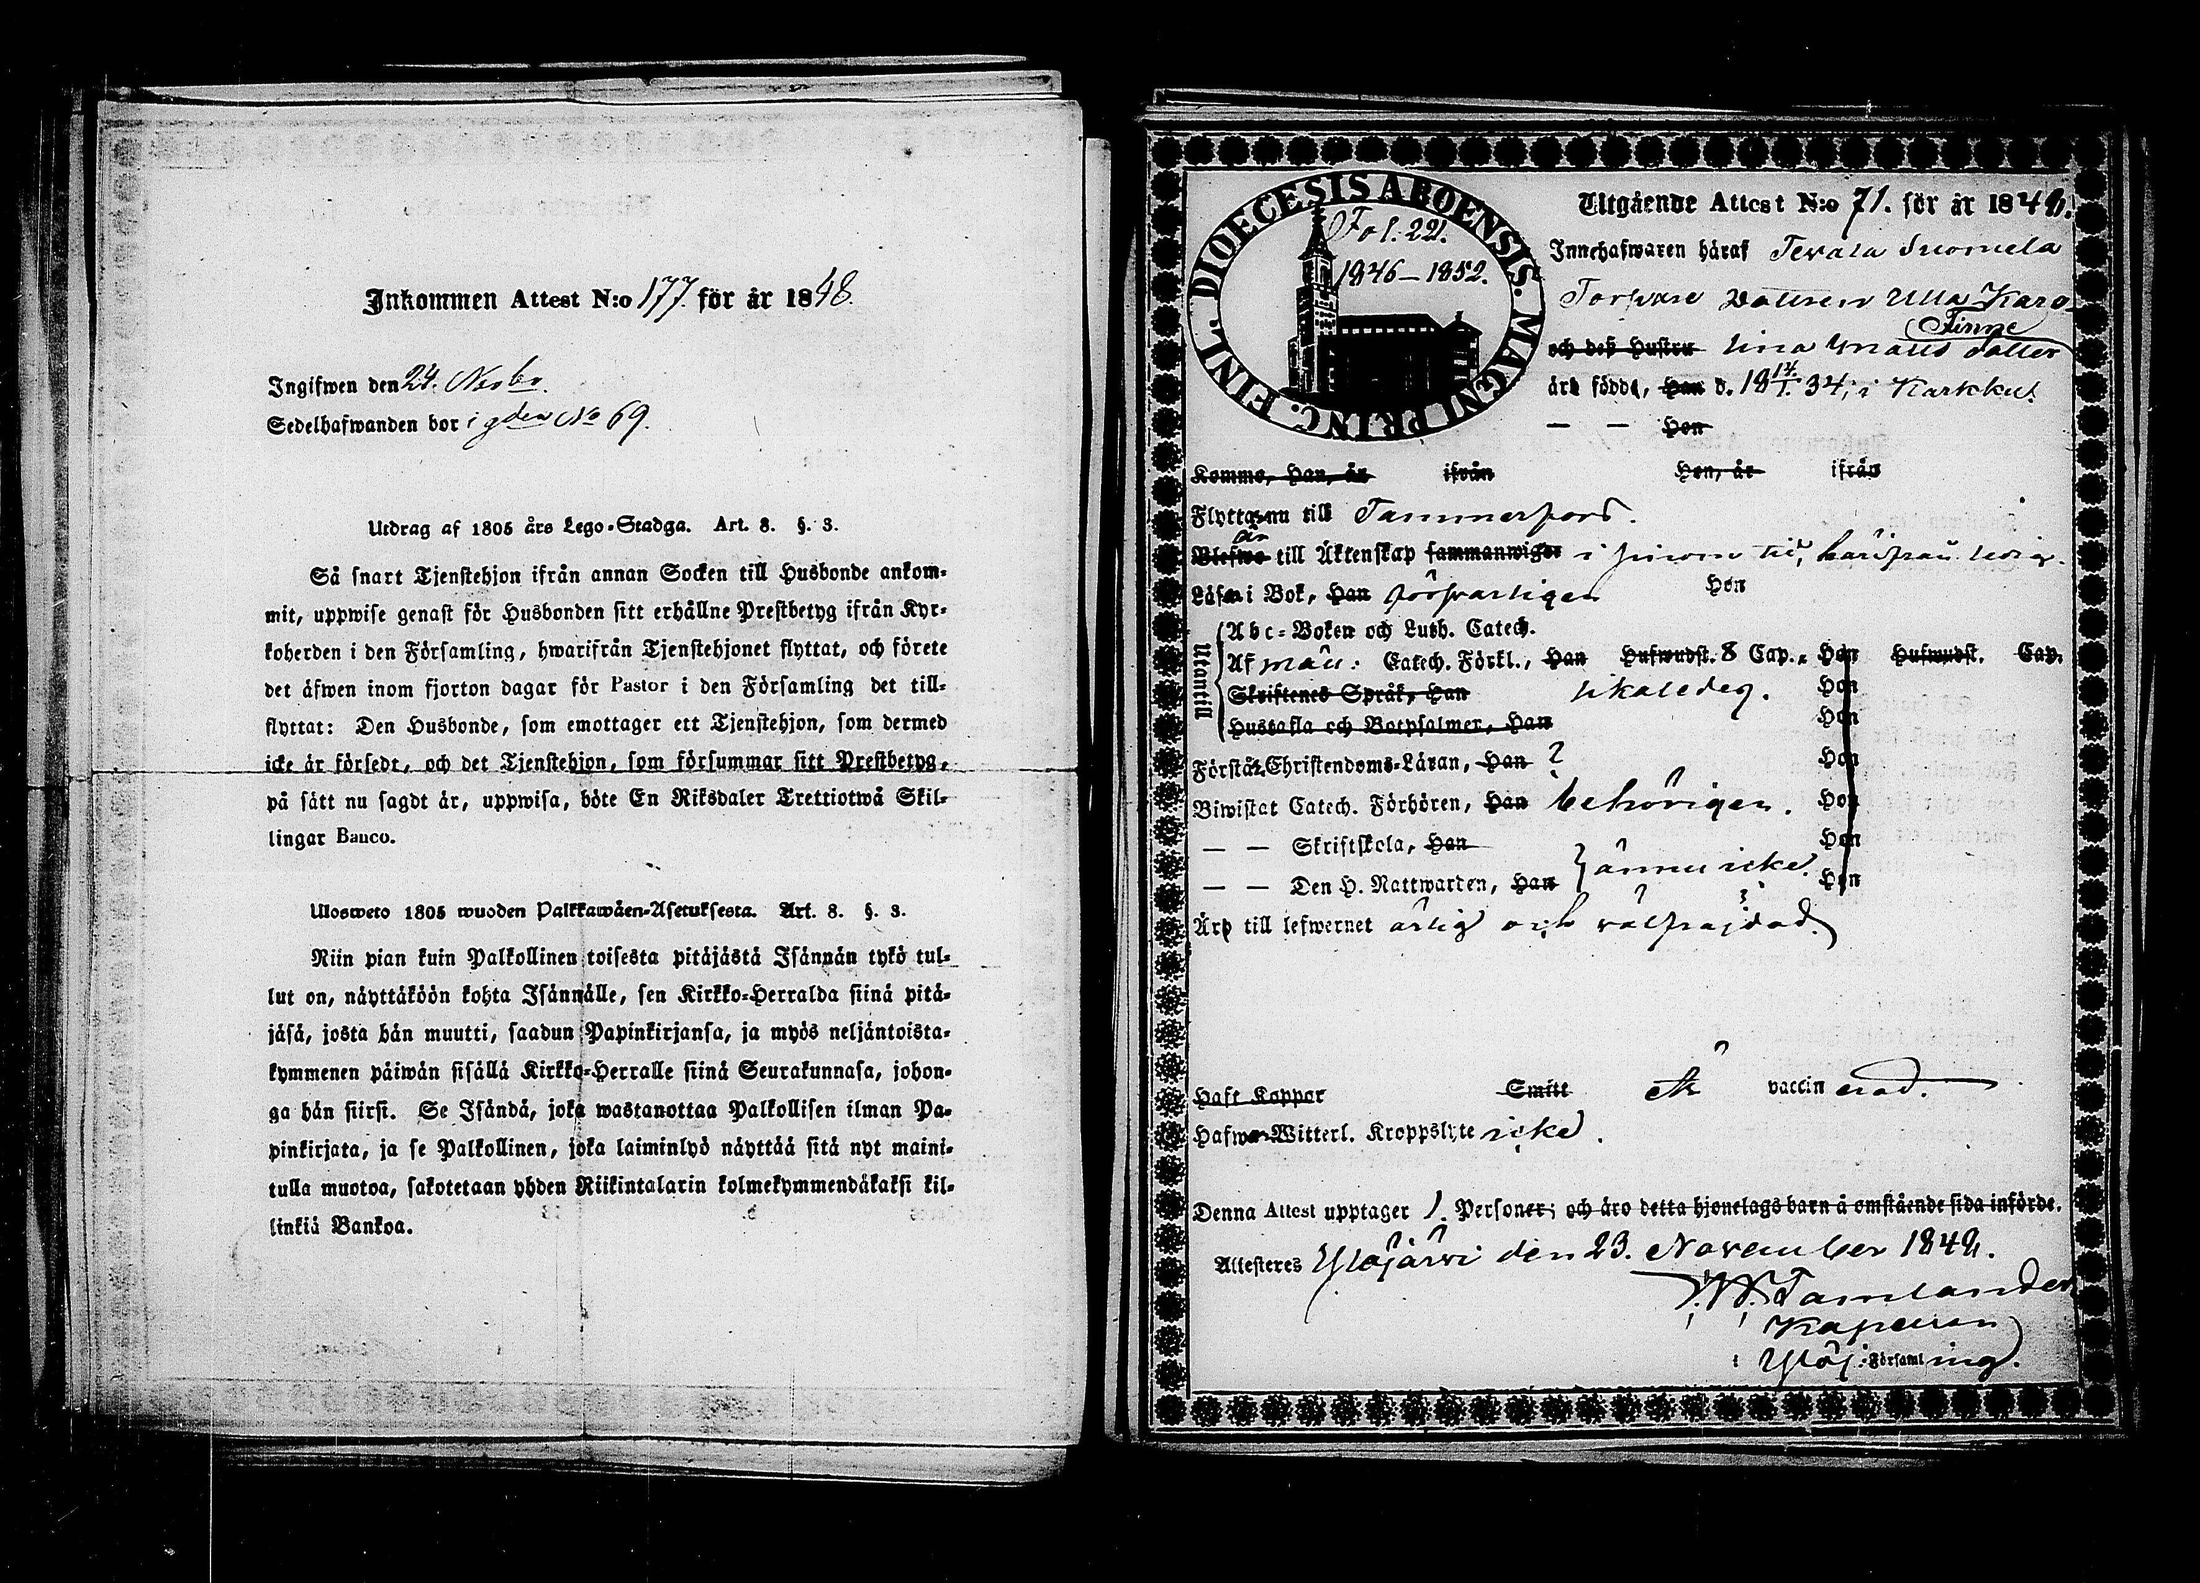 Inkommen Attest N:o 177. för år 1848.
Ingifwen den 24. Novbr.
Sedelhafwanden bor i gden No 69.
Utdrag af 1805 års Lego-Stadga. Art. 8. §. 3.
Så snart Tjenstehjon ifrån annan Socken till Husbonde ankom-
mit, uppwise genast för Husbonden sitt erhållne Prestbetyg ifrån Kyr-
koherden i den Församling, hwarifrån Tjenstehjonet flyttat, och förete
det äfwen inom fjorton dagar för Pastor i den Församling det till-
flyttat: Den Husbonde, som emottager ett Tjenstehjon, som dermed
icke är försedt, och det Tjenstehjon, som försummar sitt Prestbetyg,
på sätt nu sagdt är, uppwisa, böte En Riksdaler Trettiotwå Skil-
lingar Banco.
Ulosweto 1805 wuoden Palkkawäen-Asetuksesta. Art. 8. §. 3.
Niin pian kuin Palkollinen toisesta pitäjästä Isännän tykö tul-
lut on, näyttäköön kohta Isännälle, sen Kirkko-Herralda siinä pitä-
jäsä, josta hän muutti, saadun Papinkirjansa, ja myös neljäntoista-
kymmenen päiwän sisällä Kirkko-Herralle siinä Seurakunnasa, johon-
ga hän siirsi. Se Isändä, joka wastanottaa Palkollisen ilman Pa-
pinkirjata, ja se Palkollinen, joka laiminlyö näyttää sitä nyt maini-
tulla muotoa, sakotetaan yhden Riikintalarin kolmekymmendäkaksi kil-
linkiä Bankoa.
FINL. DIOECESIS ABOENSIS. MAGNI PRINC.
Fol. 221.
1846-1852.
Utgående Attest N:o 71. för år 1848.
Innehafwaren häraf Tevala Suomela
Torpare dottren Ulla Karo-
Finne
och deß Hustru lina Matts dotter
äre födde, Han d. 18 14/1. 34, i Karkku.
— — Hon
Komme, Han, år ifrån Hon, år ifrån
Flytta nu till Tammerfors.
är
Blefwo till Äktenskap sammanwigde i hinderslöshet, ledig.
Läsa i Bok, Han försvarligen Hon
Utantill
Abc-Boken och Luth. Catech.
Af Catech. Förkl., Han Hufwudst. 8 Cap., Hon Hufwudst. Cap.
Skriftenes Språk, Han likaledes. Hon
Hustafla och Botpsalmer, Han Hon
Förstå Christendoms-Läran, Han Hon
Biwistat Catech. Förhören, Han behörigen. Hon
— — Skriftskola, Han Hon
— — Den H. Nattwarden, Han ännu icke. Hon
Äro till lefwernet ärlig och välfrejdad.
Haft Koppor Smitt vaccinerad.
Hafwa Witterl. Kroppslyte icke.
Denna Attest upptager 1. Personer; och äro detta hjonelags barn å omstående sida införde.
Attesteres Ylöjärvi den 23. November 1848.
Tamlander
Kapellan
i Ylöj. Församling.